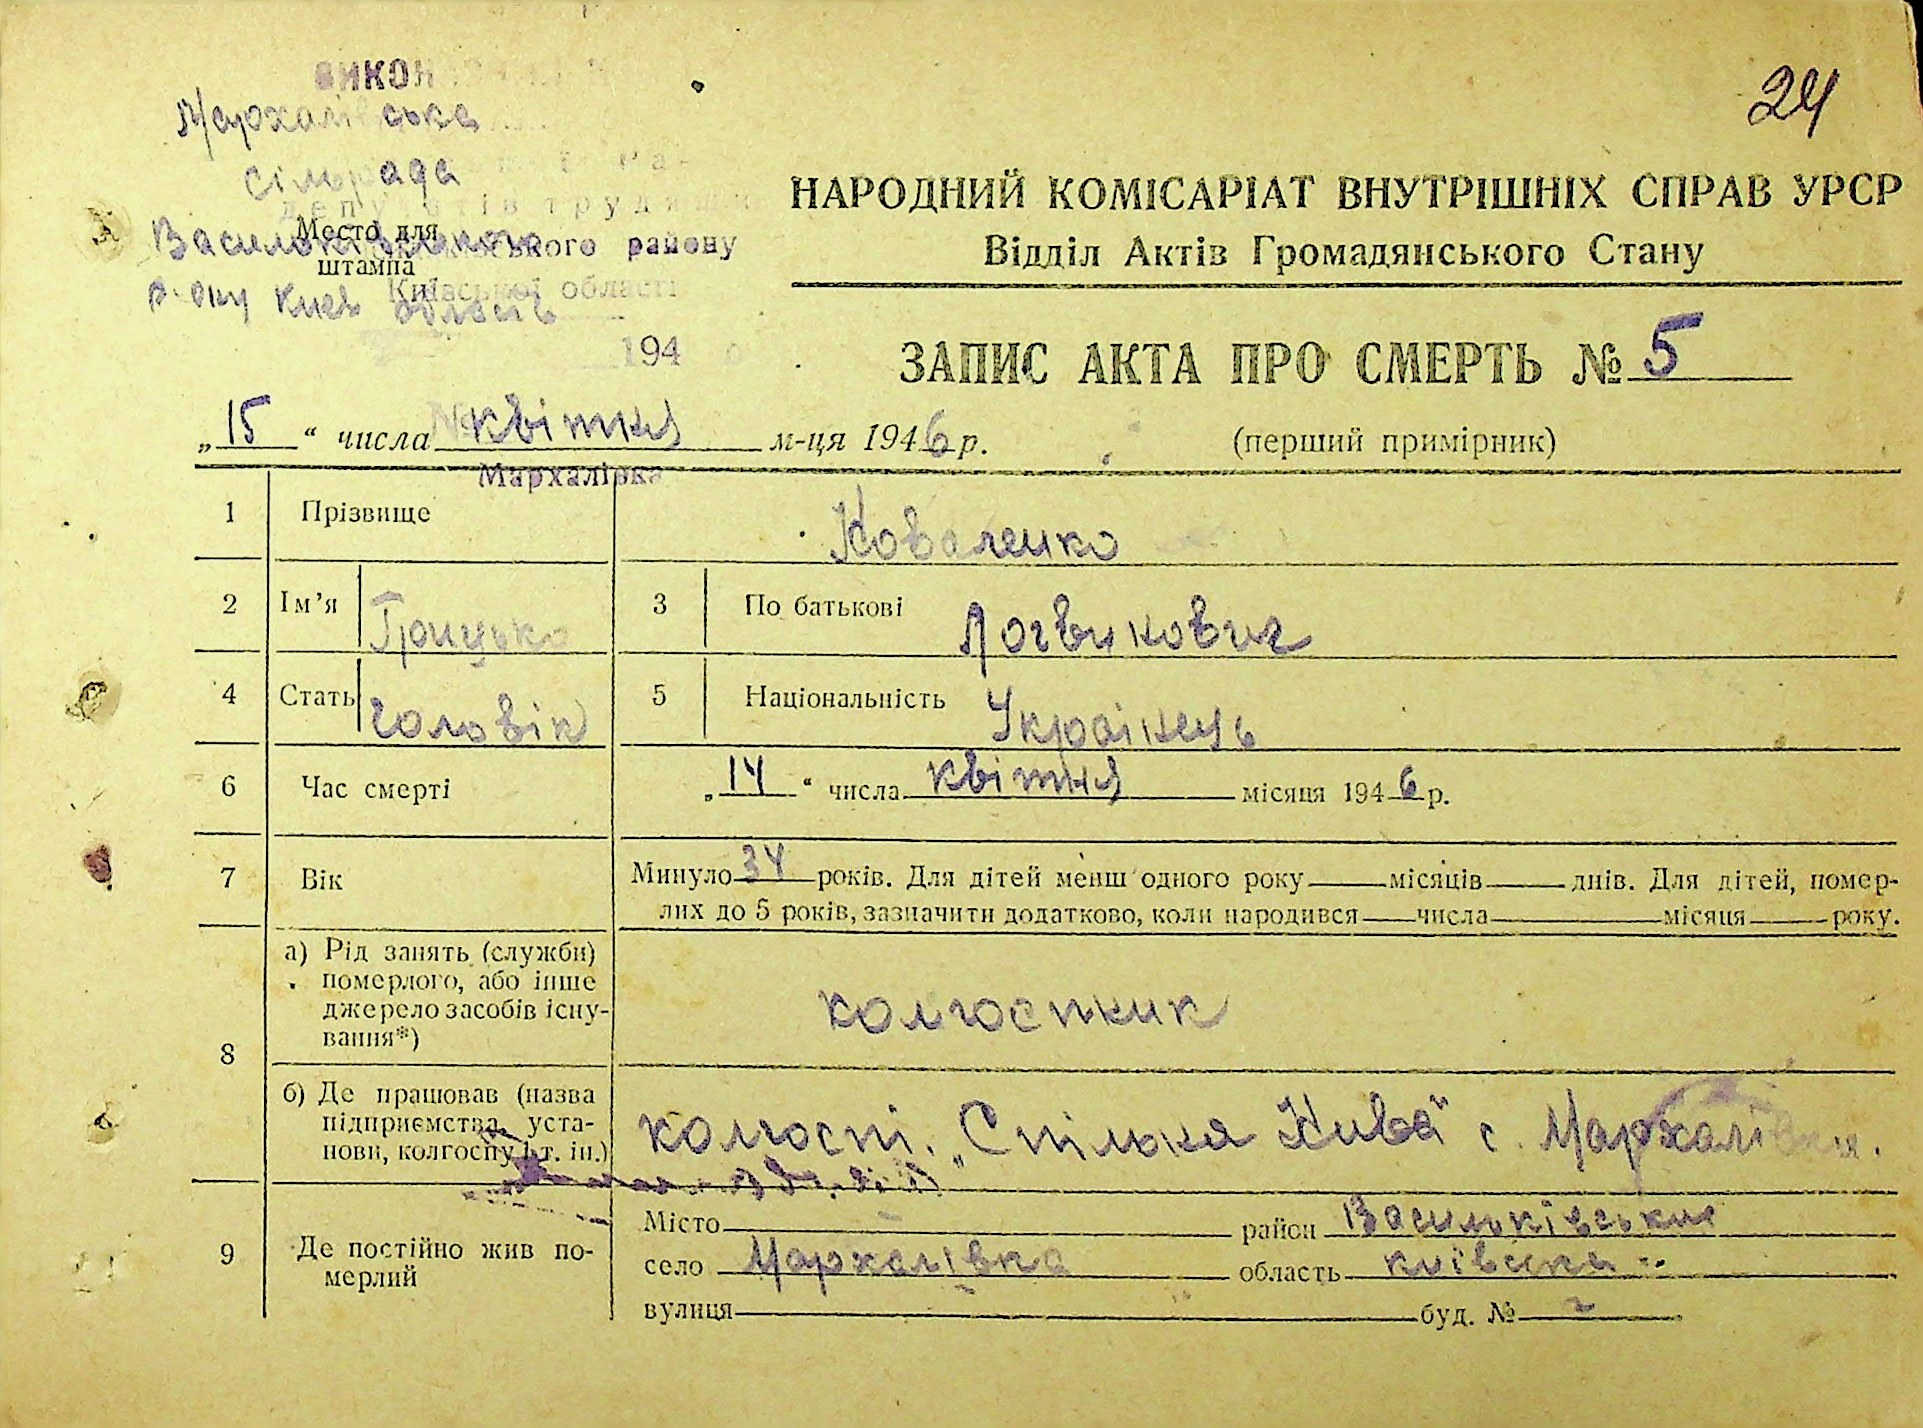 24
Мархалівська
сільрада
Васильківського
Місто для
штампа
району
Київської області
р-ону Киев область
194
НАРОДНИЙ КОМІСАРІАТ ВНУТРІШНІХ СПРАВ УРСР
Відділ Актів Громадянського Стану
ЗАПИС АКТА ПРО СМЕРТЬ № 5
„15“ числа квітня м-ця 1946 р. (перший примірник)
Мархалівка
1 Прізвище Коваленко
2 Ім’я Грицько 3 По батькові Логвинович
4 Стать Чоловік 5 Національність Українець
6 Час смерті „14“ числа квітня місяця 1946 р.
7 Вік Минуло 34 років. Для дітей менш одного року місяців днів. Для дітей, помер-
лих до 5 років, зазначити додатково, коли народився числа місяця року.
8 а) Рід занять (служби)
померлого, або інше
джерело засобів існу-
вання*)
колгоспник
б) Де працював (назва
підприємства, уста-
нови, колгоспу і т. ін.)
колгоспі „Спільна Нива“ с. Мархалівки.
9 Де постійно жив по-
мерлий
Місто район Васильківський
село Мархалівка область київська
вулиця буд. №